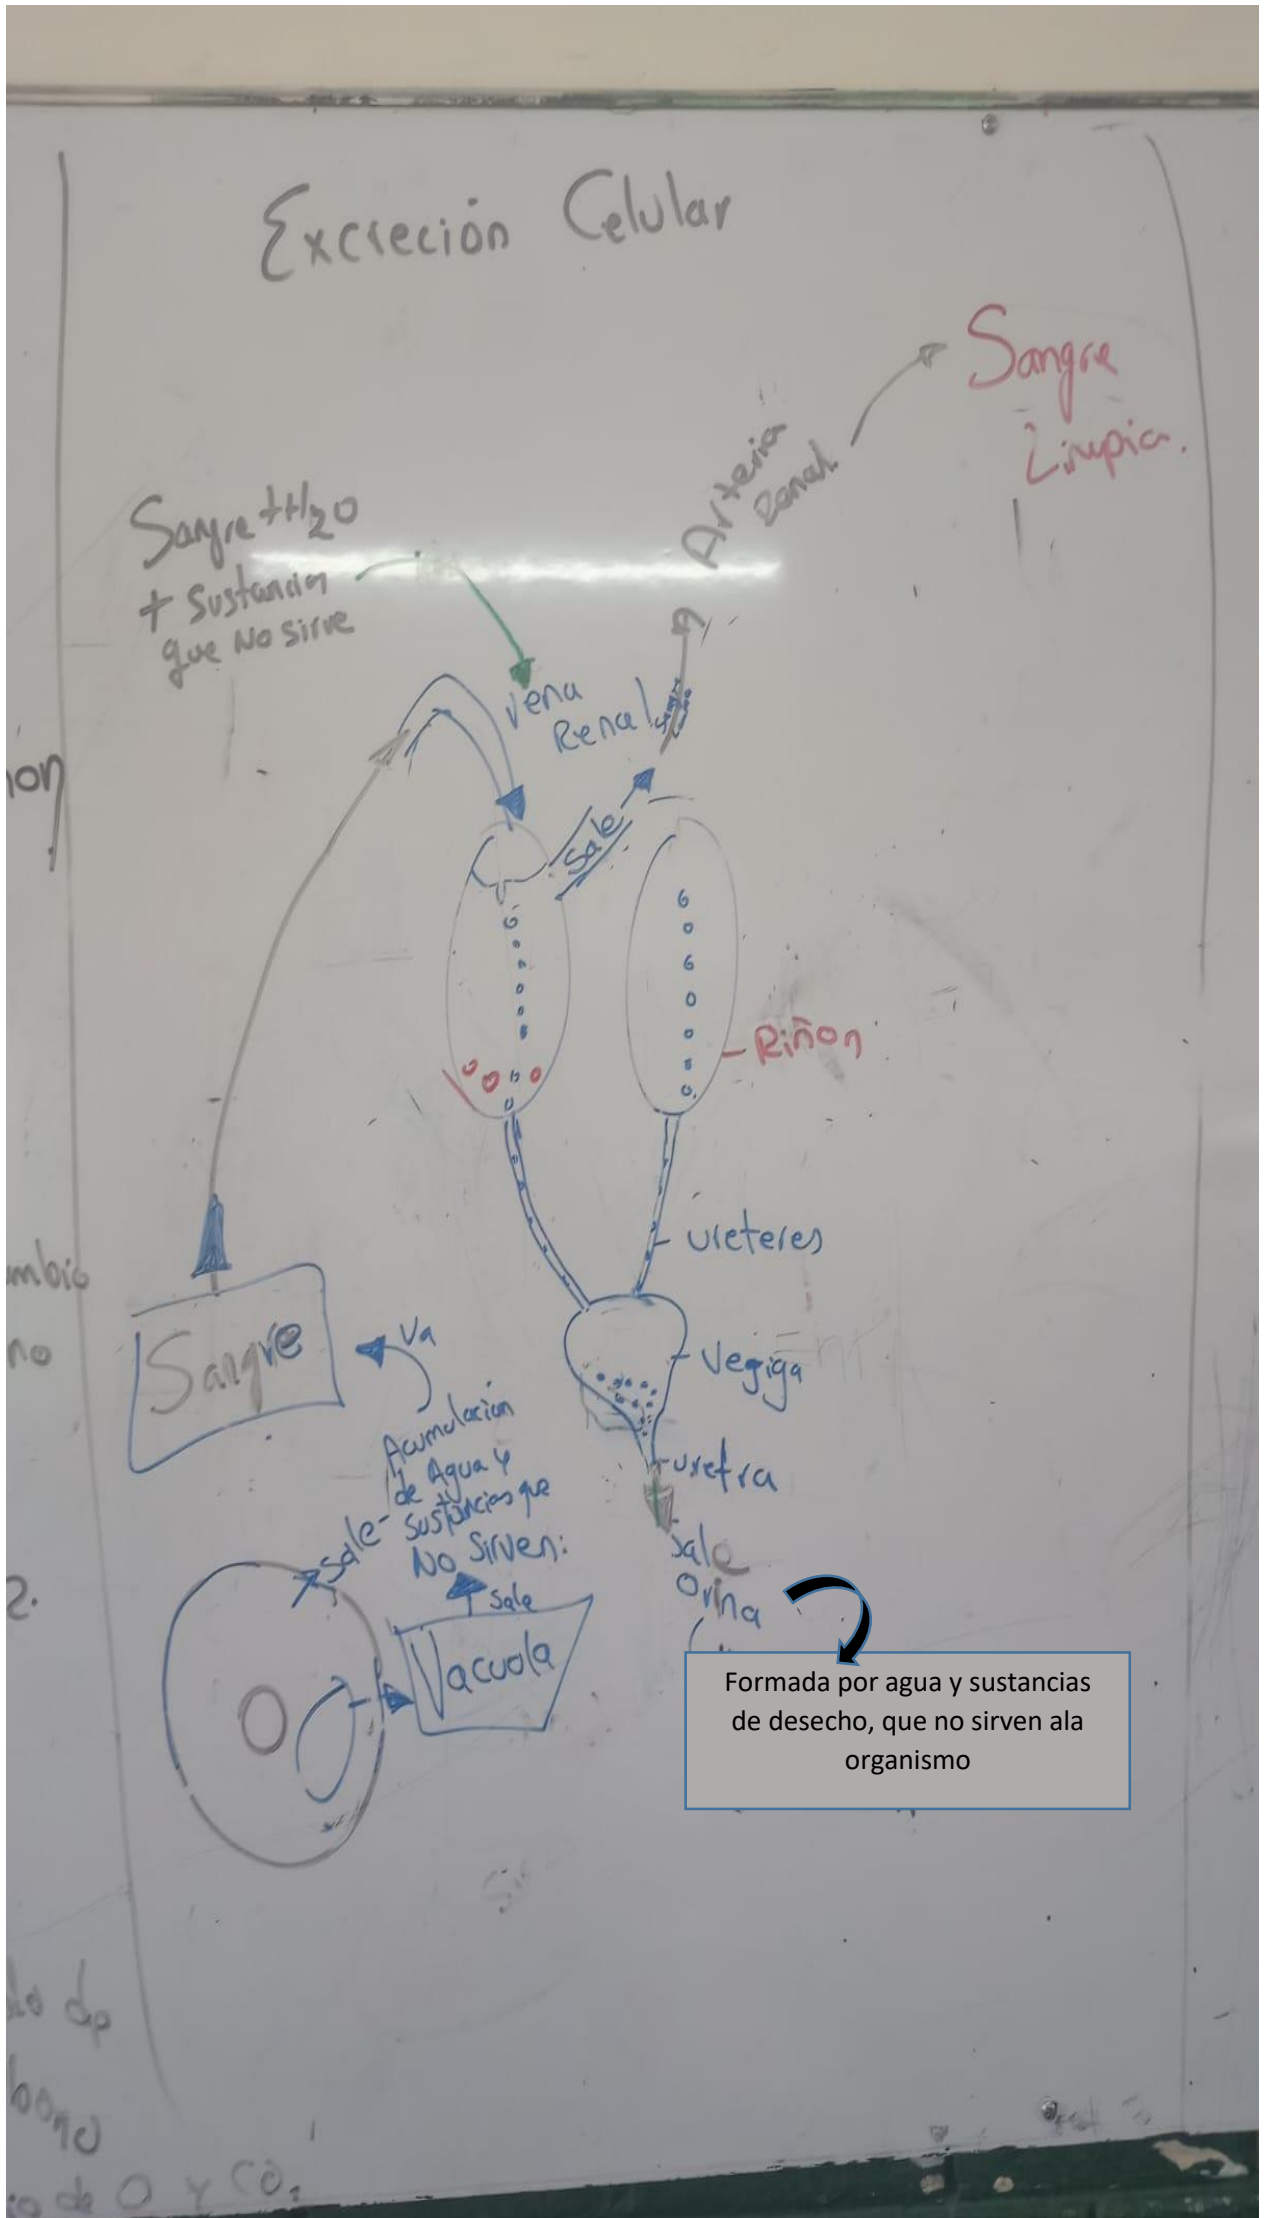 Excreción Celular
Sangre
Limpia.
Arteria
Renal
Sangre + H2O
+ Sustancias
que No sirve
Vena
Renal
Sale
Riñon
ureteres
Vegiga
uretra
Sale
Orina
Formada por agua y sustancias
de desecho, que no sirven ala
organismo
Sangre
Va
Acumulación
de Agua y
sustancias que
No Sirven:
Sale
Sale
Vacuola
ion
mbio
no
2.
do de
bono
io de O y CO2